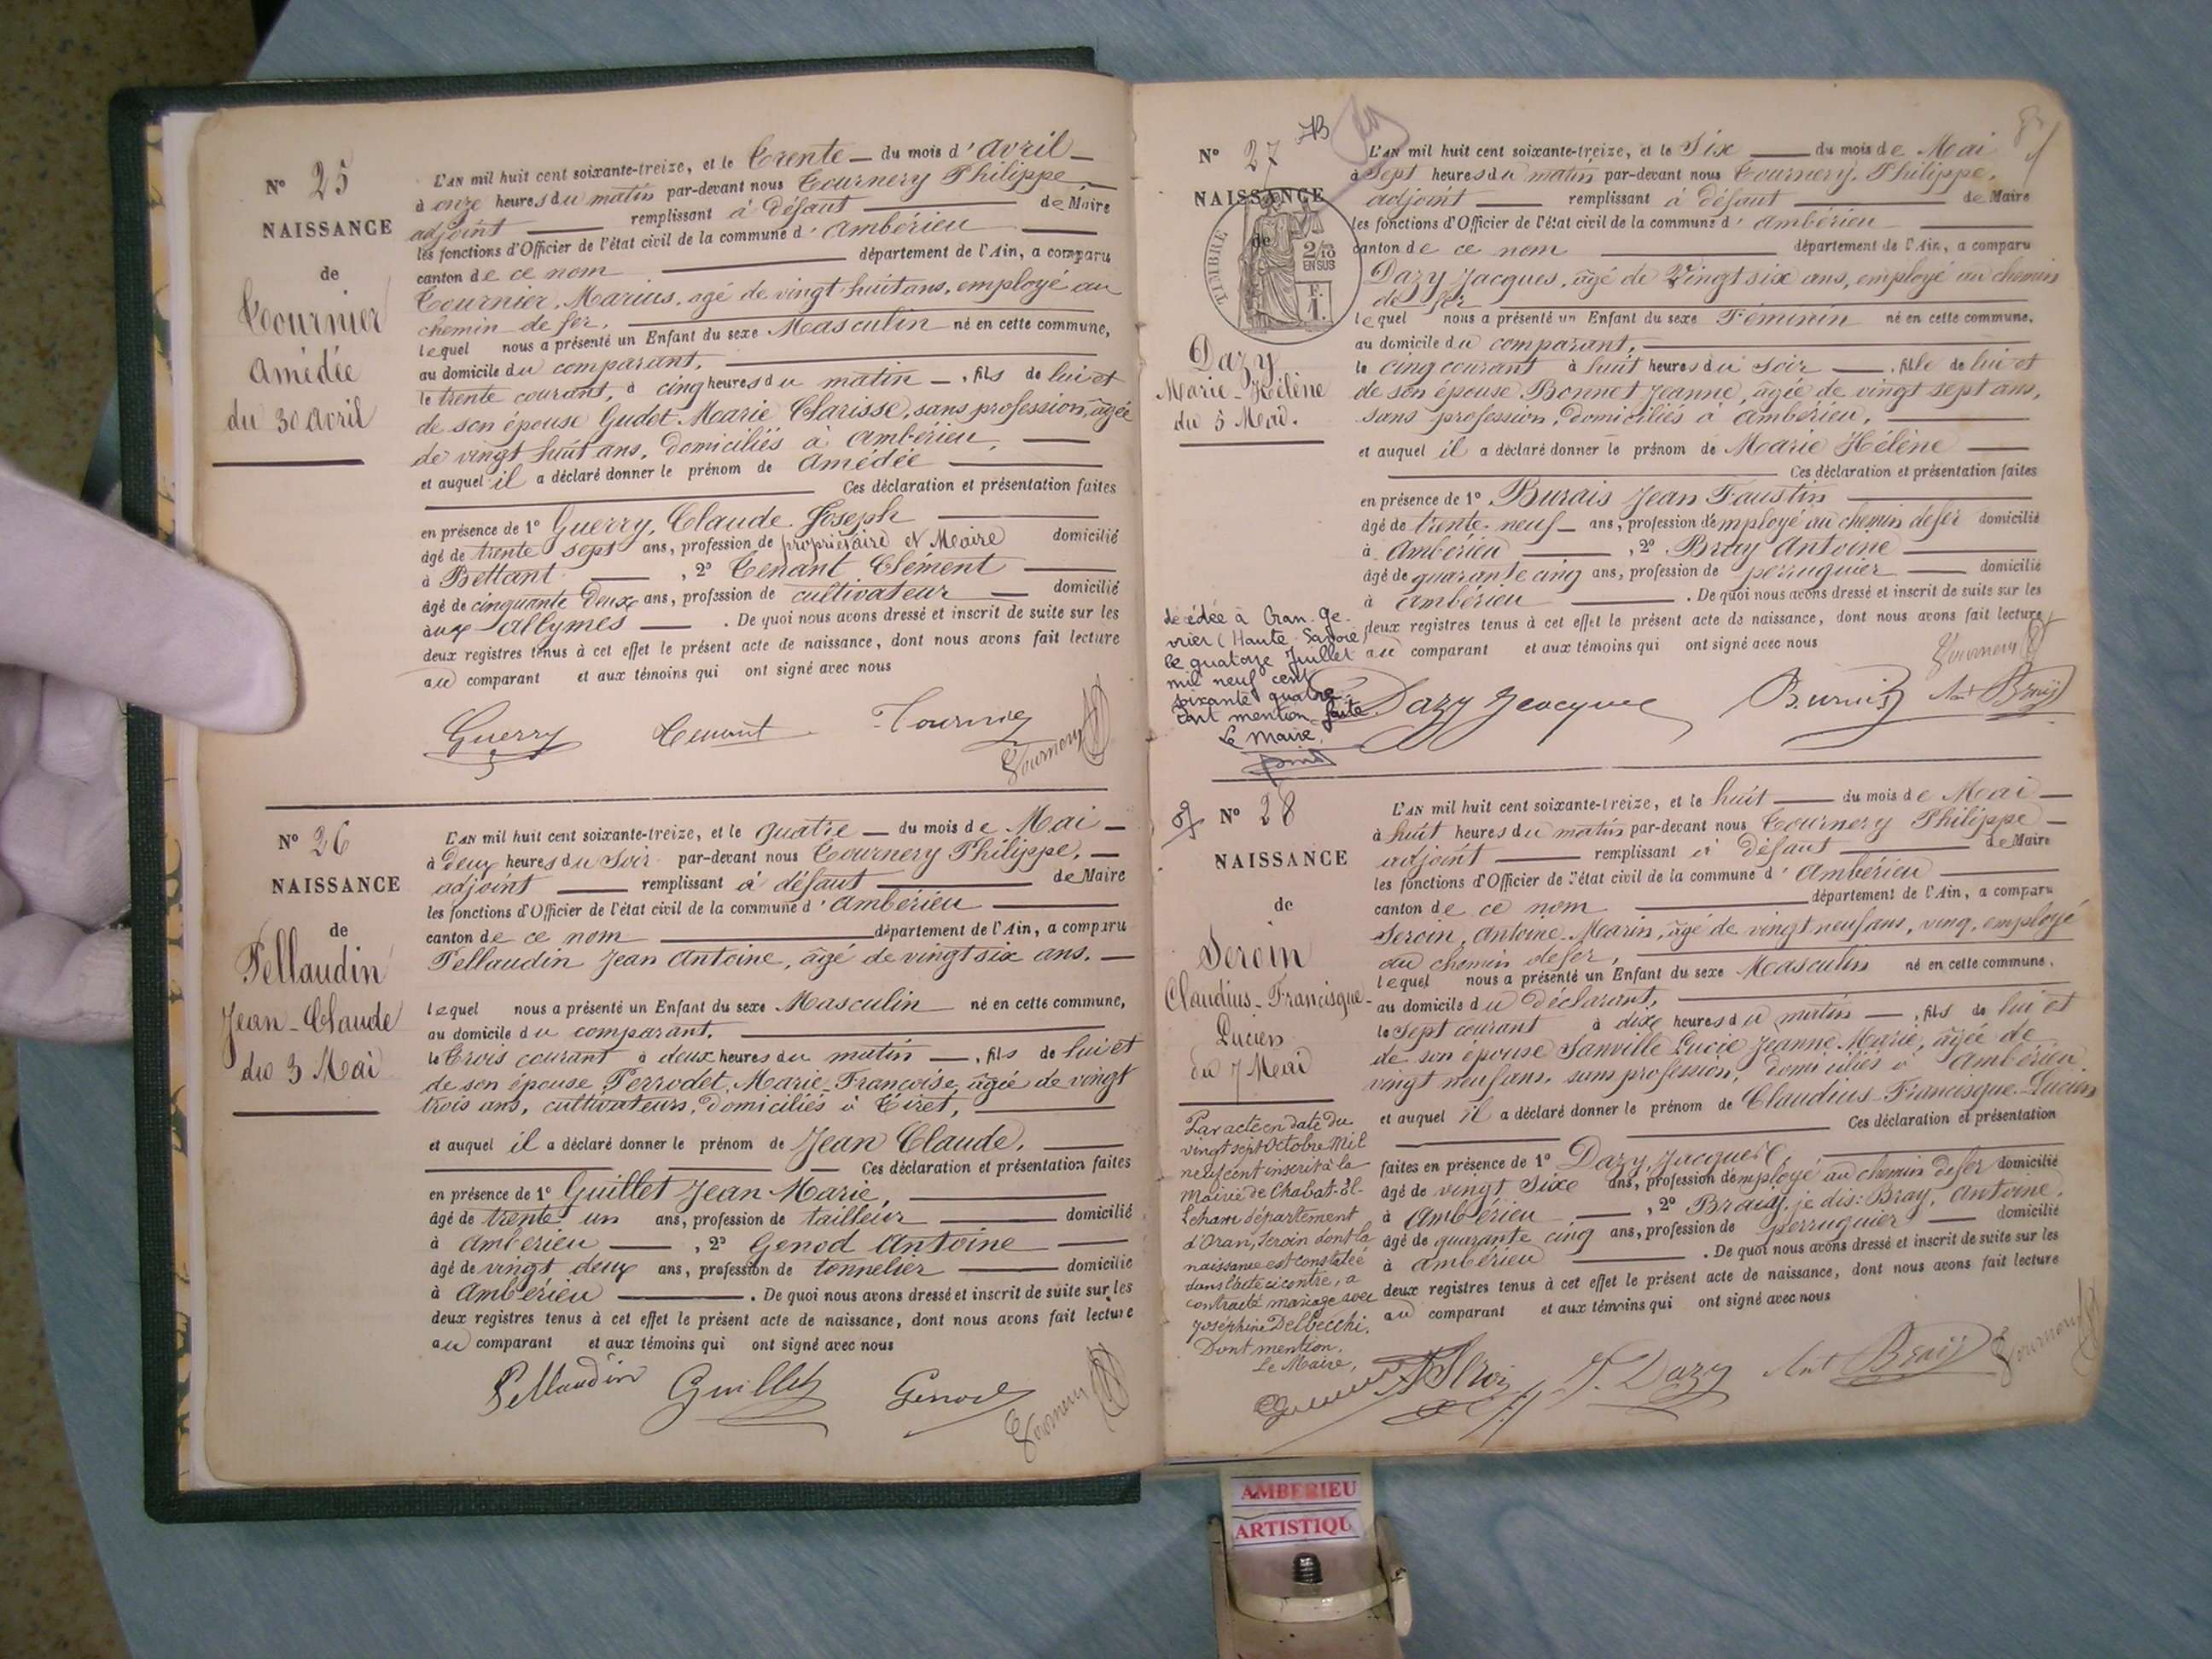 N° 25
NAISSANCE
de
Tournier
Amédée
du 30 avril
L'AN mil huit cent soixante-treize, et le Trente du mois d'avril
à onze heures du matin par-devant nous Tournery Philippe
adjoint remplissant à défaut de Maire
les fonctions d'Officier de l'état civil de la commune d'Ambérieu
canton de ce nom département de l'Ain, a comparu
Tournier, Marius, agé de vingt huit ans, employé au
chemin de fer,
lequel nous a présenté un Enfant du sexe Masculin né en cette commune,
au domicile du comparant,
le trente courant, à cinq heures du matin, fils de lui et
de son épouse Gudet Marie Clarisse, sans profession, âgée
de vingt huit ans, domiciliés à Ambérieu,
et auquel il a déclaré donner le prénom de Amédée
Ces déclaration et présentation faites
en présence de 1° Guerry, Claude Joseph
âgé de trente sept ans, profession de propriétaire et Maire domicilié
à Bettant, 2° Tenant Clément
âgé de cinquante deux ans, profession de cultivateur domicilié
aux Allymes. De quoi nous avons dressé et inscrit de suite sur les
deux registres tenus à cet effet le présent acte de naissance, dont nous avons fait lecture
au comparant et aux témoins qui ont signé avec nous
Guerry Tenant Tournier
Tournery
N° 26
NAISSANCE
de
Pellaudin
Jean-Claude
du 3 Mai
L'AN mil huit cent soixante-treize, et le quatre du mois de Mai
à deux heures du soir par-devant nous Tournery Philippe,
adjoint remplissant à défaut de Maire
les fonctions d'Officier de l'état civil de la commune d'Ambérieu
canton de ce nom département de l'Ain, a comparu
Pellaudin Jean Antoine, âgé de vingt six ans,
lequel nous a présenté un Enfant du sexe Masculin né en cette commune,
au domicile du comparant,
le Trois courant à deux heures du matin, fils de lui et
de son épouse Perrodet, Marie Françoise, âgée de vingt
trois ans, cultivateurs, domiciliés à Tiret,
et auquel il a déclaré donner le prénom de Jean Claude,
Ces déclaration et présentation faites
en présence de 1° Guillet Jean Marie,
âgé de trente un ans, profession de tailleur domicilié
à Ambérieu, 2° Genod Antoine
âgé de vingt deux ans, profession de tonnelier domicilié
à Ambérieu. De quoi nous avons dressé et inscrit de suite sur les
deux registres tenus à cet effet le présent acte de naissance, dont nous avons fait lecture
au comparant et aux témoins qui ont signé avec nous
Pellaudin Guillet Genod
Tournery
N° 27
NAISSANCE
de
TIMBRE
2/10
EN SUS
F.
1.
Dazy
Marie-Hélène
du 5 Mai.
L'AN mil huit cent soixante-treize, et le Six du mois de Mai
à Sept heures du matin par-devant nous Tournery, Philippe,
adjoint remplissant à défaut de Maire
les fonctions d'Officier de l'état civil de la commune d'Ambérieu
canton de ce nom département de l'Ain, a comparu
Dazy Jacques, âgé de Vingt six ans, employé au chemin
de fer
lequel nous a présenté un Enfant du sexe Féminin né en cette commune,
au domicile du comparant,
le cinq courant à huit heures du soir, fille de lui et
de son épouse Bonnet Jeanne, âgée de vingt sept ans,
sans profession, domiciliés à Ambérieu,
et auquel il a déclaré donner le prénom de Marie Hélène
Ces déclaration et présentation faites
en présence de 1° Burais Jean Faustin
âgé de trente-neuf ans, profession d'employé au chemin de fer domicilié
à Ambérieu, 2° Bray Antoine
âgé de quarante cinq ans, profession de perruquier domicilié
à Ambérieu. De quoi nous avons dressé et inscrit de suite sur les
deux registres tenus à cet effet le présent acte de naissance, dont nous avons fait lecture
au comparant et aux témoins qui ont signé avec nous
Tournery
Dazy Jacques Burais Ant Bray
décédée à Cran-Ge-
vrier (Haute-Savoie)
le quatorze Juillet
mil neuf cent
soixante quatre
Dont mention faite
Le Maire,
N° 28
NAISSANCE
de
Seroin
Claudius-Francisque-
Lucien
du 7 Mai
L'AN mil huit cent soixante-treize, et le huit du mois de Mai
à huit heures du matin par-devant nous Tournery Philippe
adjoint remplissant à défaut de Maire
les fonctions d'Officier de l'état civil de la commune d'Ambérieu
canton de ce nom département de l'Ain, a comparu
Seroin, Antoine Marin, âgé de vingt neuf ans, vinq, employé
au chemin de fer,
lequel nous a présenté un Enfant du sexe Masculin né en cette commune,
au domicile du déclarant,
le Sept courant à dix heures du matin, fils de lui et
de son épouse Sanville Lucie Jeanne Marie, âgée de
vingt neuf ans, sans profession, domiciliés à Ambérieu
et auquel il a déclaré donner le prénom de Claudius-Francisque-Lucien
Ces déclaration et présentation
faites en présence de 1° Dazy, Jacques,
âgé de vingt Six ans, profession d'employé au chemin de fer domicilié
à Ambérieu, 2° Braüy, je dis: Bray, Antoine,
âgé de quarante cinq ans, profession de perruquier domicilié
à Ambérieu. De quoi nous avons dressé et inscrit de suite sur les
deux registres tenus à cet effet le présent acte de naissance, dont nous avons fait lecture
au comparant et aux témoins qui ont signé avec nous
Par acte en date du
vingt sept Octobre Mil
neuf cent inscrit à la
Mairie de Chabat-El-
Leham département
d'Oran, Seroin dont la
naissance est constatée
dans l'acte ci contre, a
contracté mariage avec
Joséphine Delbecchi.
Dont mention.
Le Maire,
J. Dazy Ant Bray Tournery
AMBERIEU
ARTISTIQU